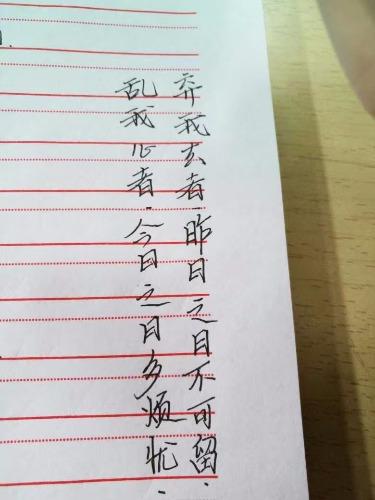 弃我去者·昨日之日不可留·
乱我心者·今日之日多烦忧·